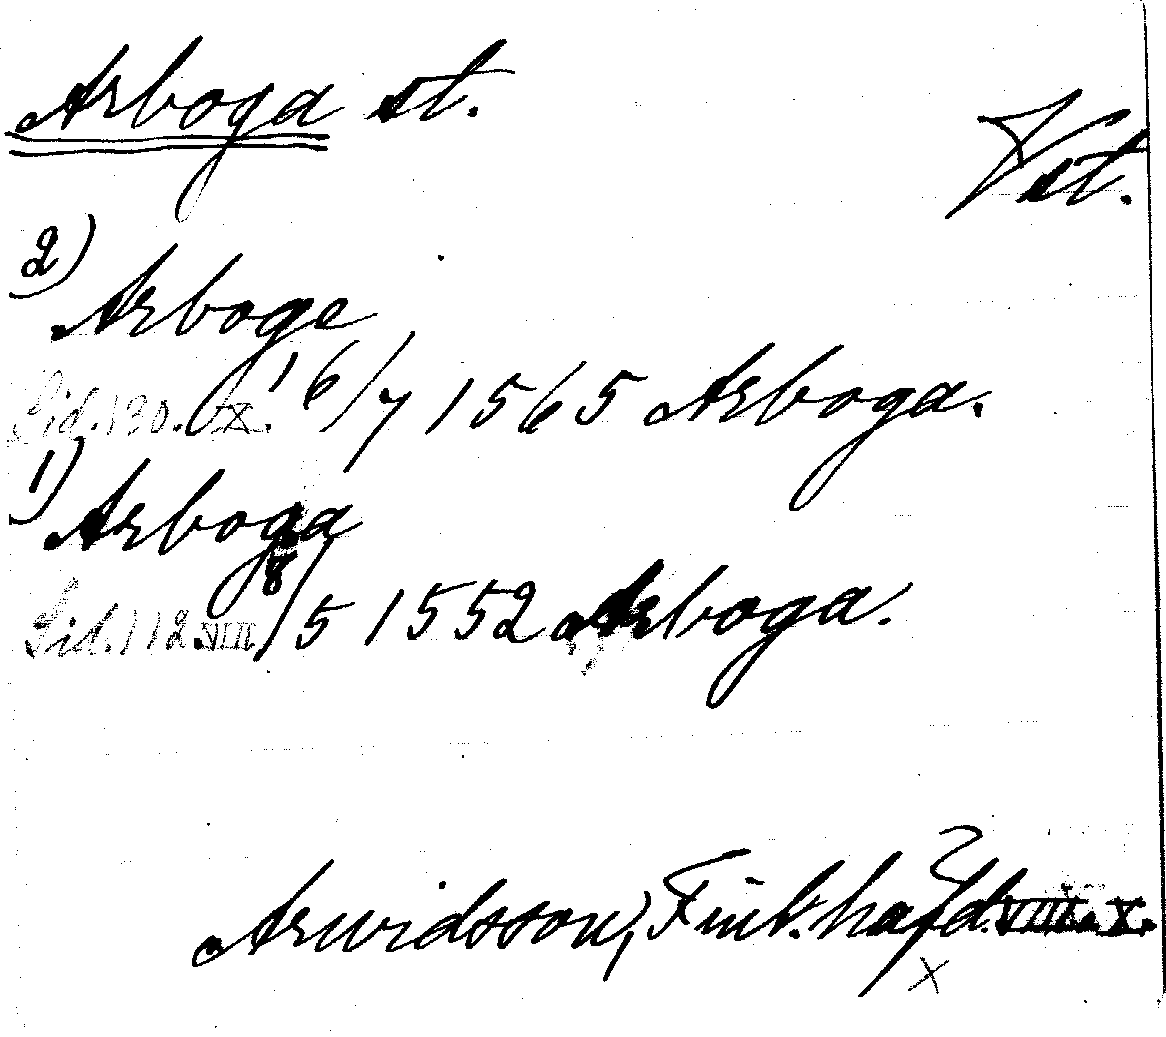 Arboga st.
Vst.
2)
Arboge
Sid. 130. X. 16/7 1565 Arboga.
1)
Arboga
Sid. 112. VIII. 8/5 1552 Arboga.
Arwidsson, Finl. häfd. VIII. X.
X